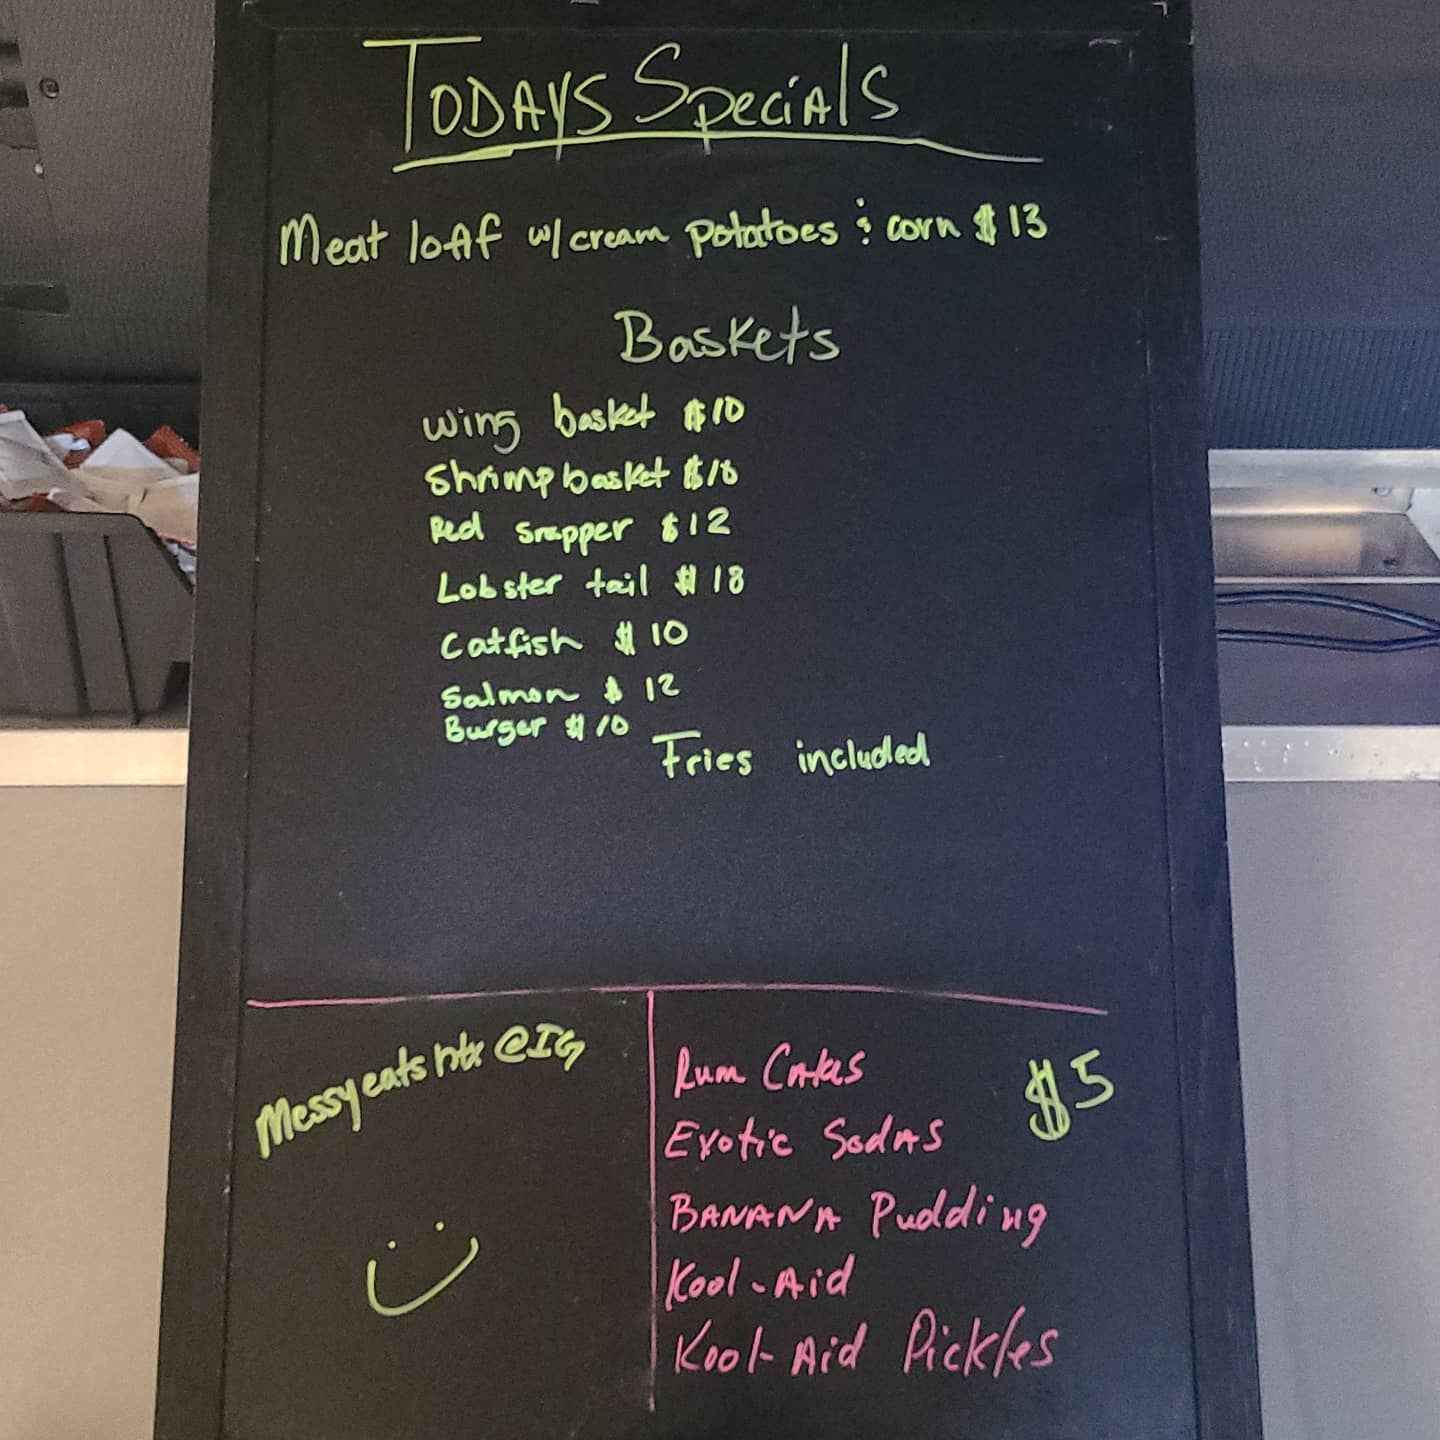 Todays Specials
Meat loaf w/cream potatoes & corn $13
Baskets
wing basket $10
Shrimp basket $10
Red snapper $12
Lobster tail $18
Catfish $10
Salmon $12
Burger $10
Fries included
Messyeats htx @IG
Rum Cakes $5
Exotic Sodas
BANANA Pudding
Kool-Aid
Kool-Aid Pickles